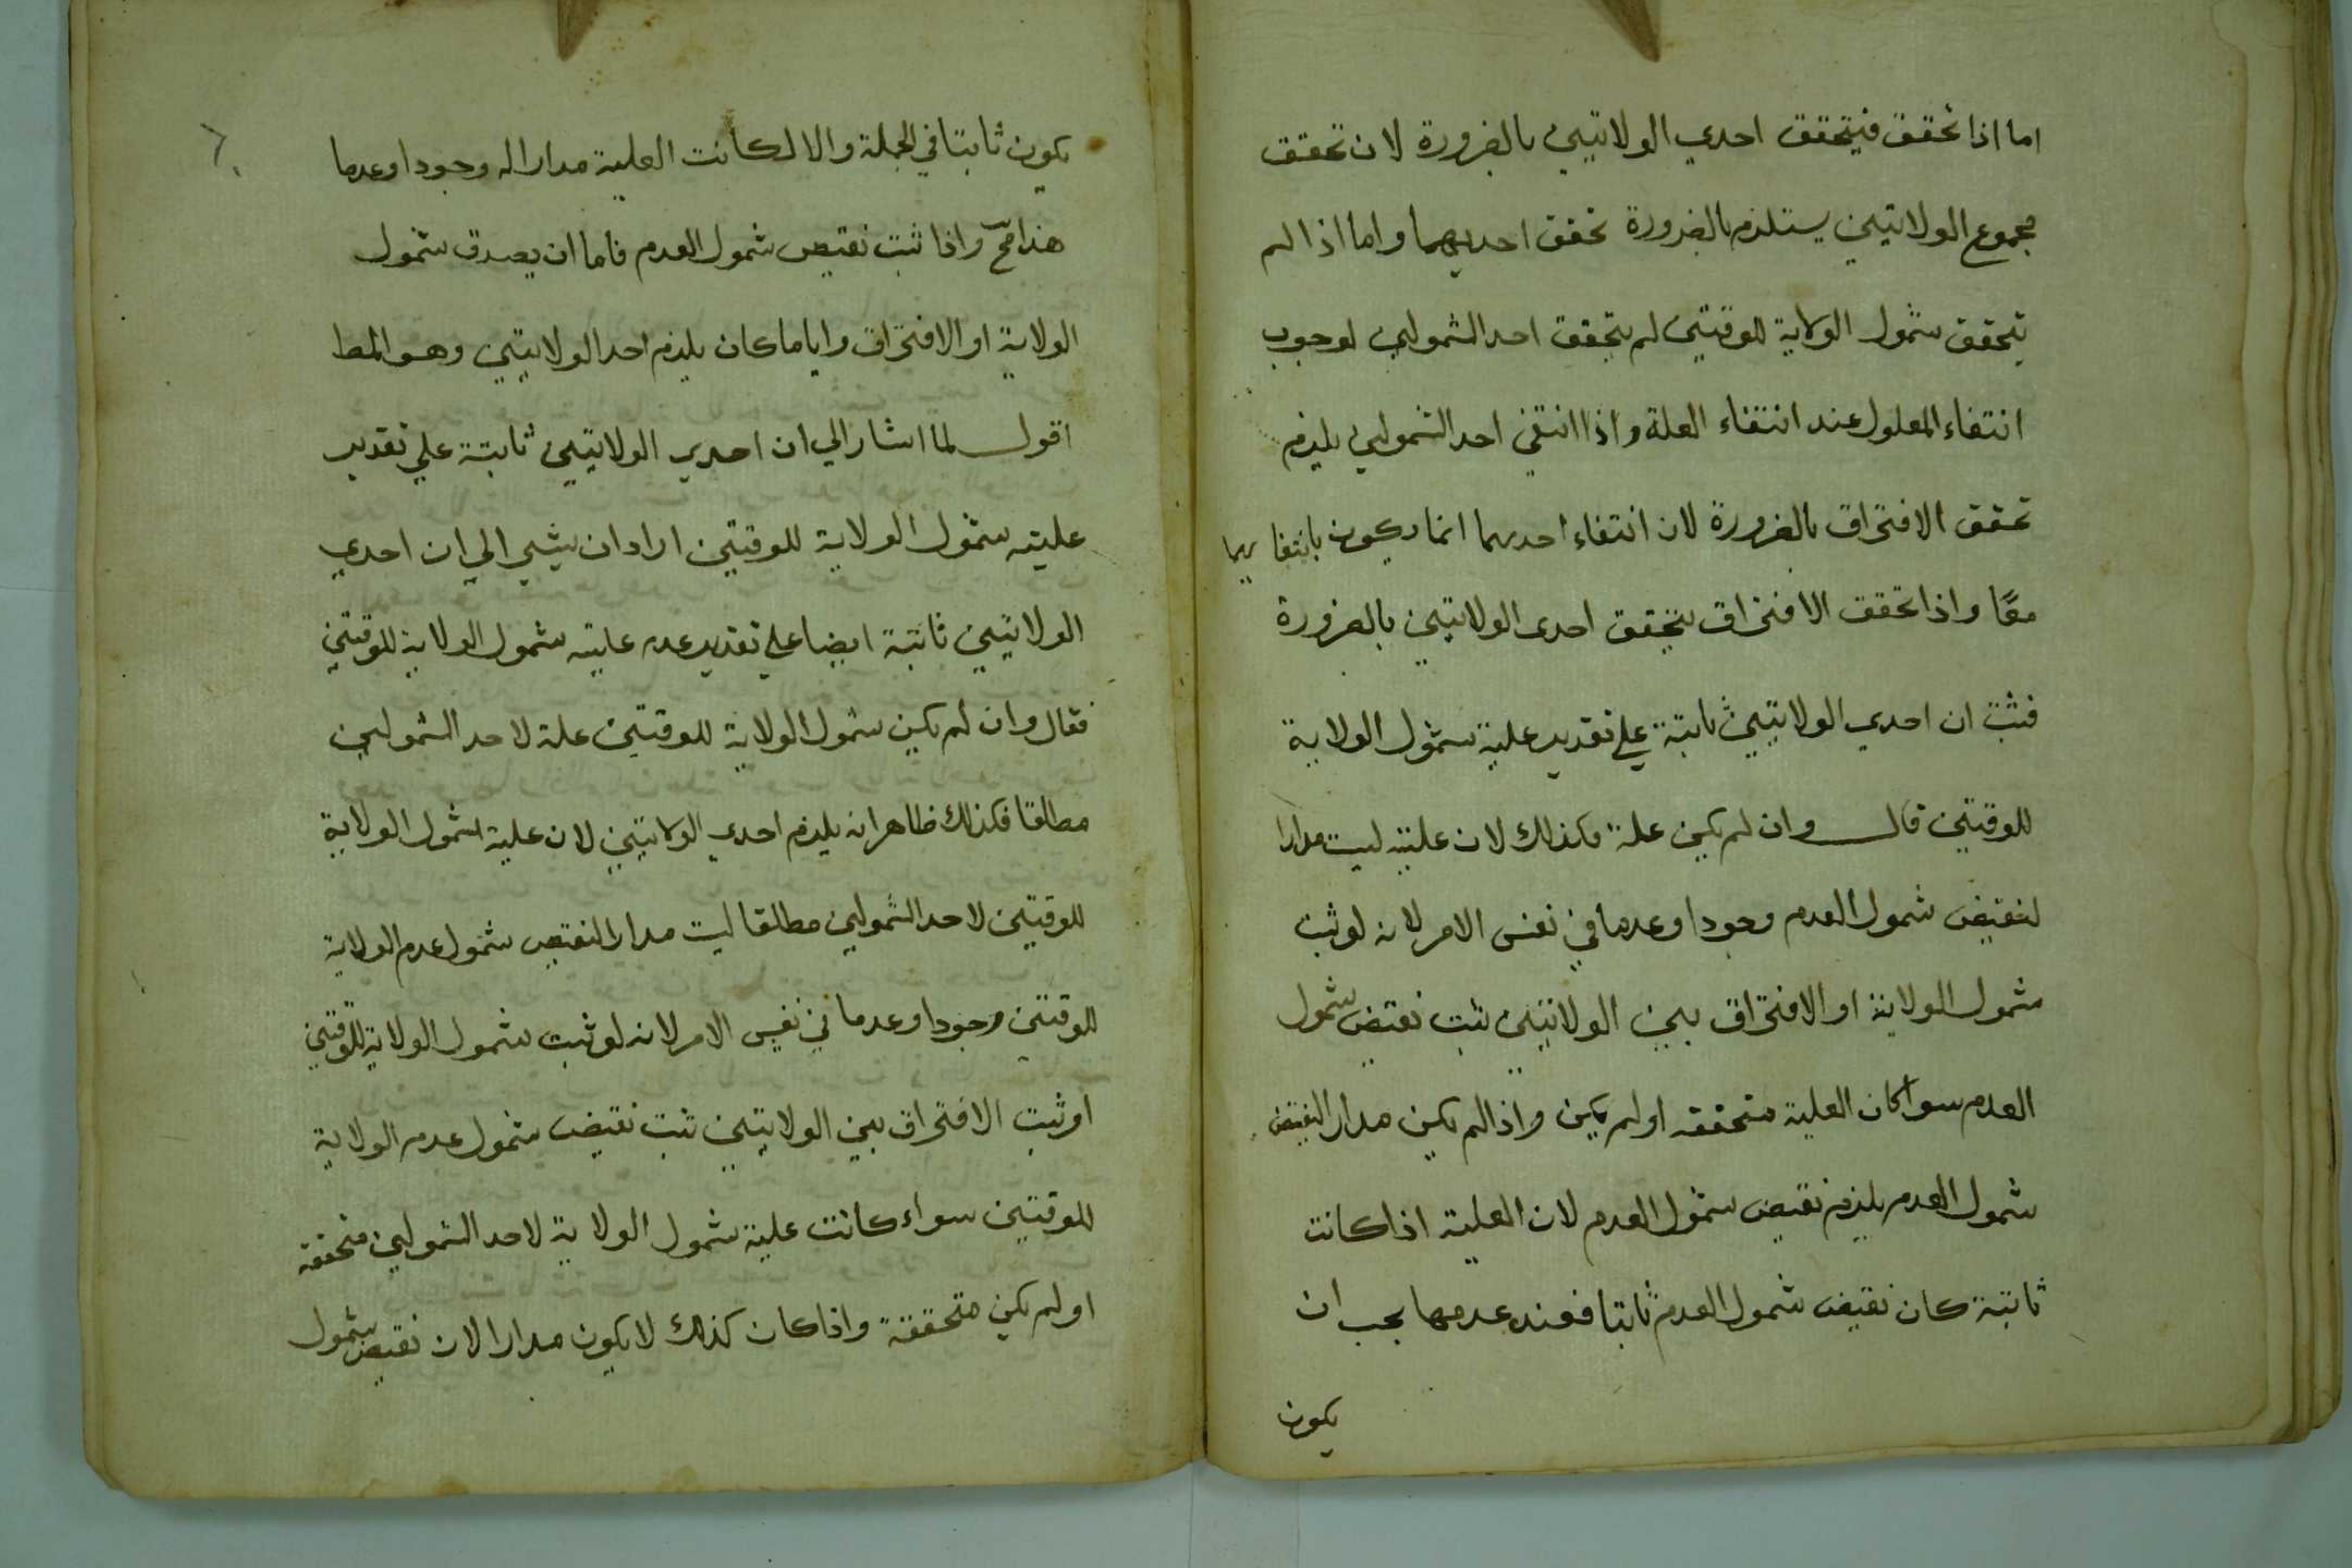 اما اذا تحقق فيتحقق احدي الولايتين بالضرورة لان تحقق
مجموع الولايتين يستلزم بالضرورة تحقق احديهما واما اذا لم
يتحقق شمول الولاية للوقتين لم يتحقق احد الشمولين لوجوب
انتفاء المعلول عند انتفاء العلة واذا انتفي احد الشمولين يلزم
تحقق الافتراق بالضرورة لان انتفاء احدهما انما يكون بانتفايهما
معًا واذا تحقق الافتراق يتحقق احدى الولايتين بالضرورة
فثبت ان احدي الولايتين ثابتة علي تقدير علية شمول الولاية
للوقتين قال وان لم يكن علة فكذلك لان عليته ليست مدارا
لنقيض شمول العدم وجودا وعدما في نفس الامر لانه لو ثبت
شمول الولاية او الافتراق بين الولايتين ثبت نقيض شمول
العدم سوا كان العلية متحققه او لم يكن واذا لم يكن مدار النقيض
شمول العدم يلزم نقيض شمول العدم لان العلية اذا كانت
ثابتة كان نقيض شمول العدم ثابتا فعند عدمها يجب ان
يكون
يكون ثابتا في الجملة والا لكانت العلية مدارا له وجودا وعدما
هذا مح واذا ثبت نقيض شمول العدم فاما ان يصدق شمول
الولاية او الافتراق وايا ما كان يلزم احد الولايتين وهو المط
اقول لما اشار الي ان احدي الولايتين ثابتة علي تقدير
عليته شمول الولاية للوقتين اراد ان يشير الي ان احدي
الولايتين ثابتة ايضا علي تقدير عدم عليته شمول الولاية للوقتين
فقال وان لم يكن شمول الولاية للوقتين علة لاحد الشمولين
مطلقا فكذلك ظاهر انه يلزم احدي الولايتين لان علية شمول الولاية
للوقتين لاحد الشمولين مطلقا ليت مدارا لنقيض شمول عدم الولاية
للوقتين وجودا وعدما في نفس الامر لانه لو ثبت شمول الولاية للوقتين
او ثبت الافتراق بين الولايتين ثبت نقيض شمول عدم الولاية
للوقتين سواء كانت علية شمول الولاية لاحد الشمولين متحققه
او لم يكن متحققة واذا كان كذلك لا يكون مدارا لان نقيض شمول